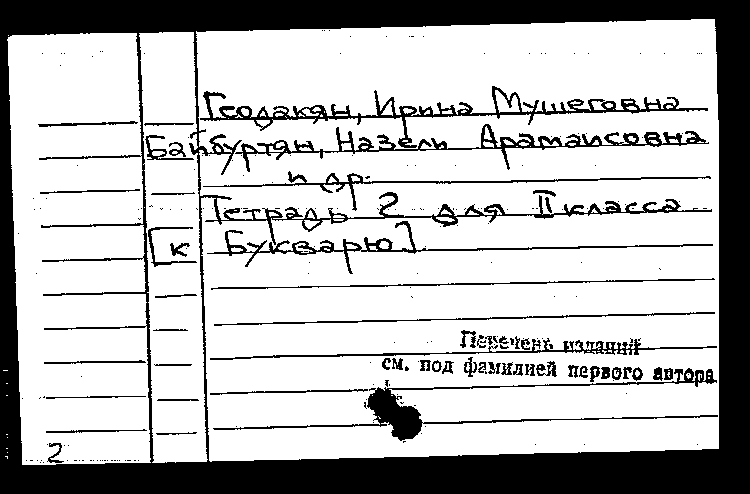 Геодакян, Ирина Мушеговна
Байбуртян, Назели Арамаисовна
и др.
Тетрадь 2 для II класса
[к Букварю]
Перечень изданий
см. под фамилией первого автора
2